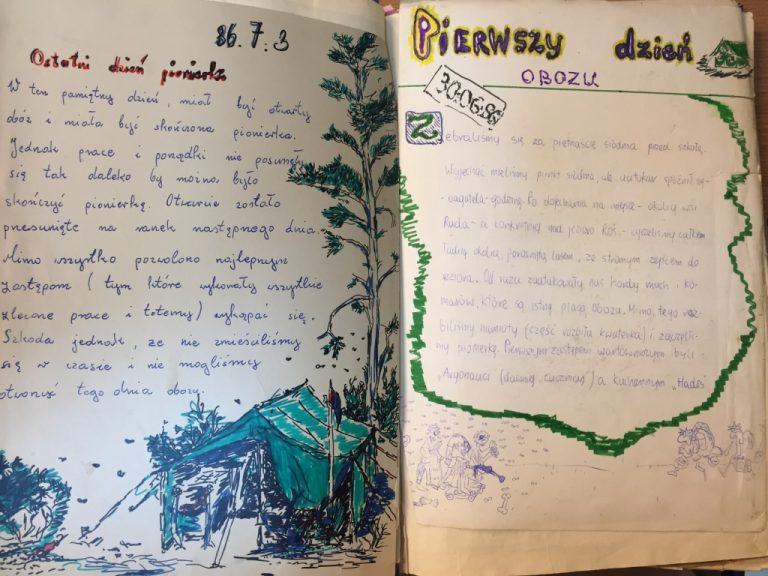 86.7.3
Ostatni dzień pionierka
W ten pamiętny dzień, miał być otwarty
obóz i miała być skończona pionierka.
Jednak prace i porządki nie posunęły
się tak daleko by można było
skończyć pionierkę. Otwarcie zostało
przesunięte na ranek następnego dnia.
Mimo wszystko pozwolono najlepszym
zastępom (tym które wykonały wszystkie
zlecone prace i totemy) wykąpać się.
Szkoda jednak, ze nie zmieściliśmy
się w czasie i nie mogliśmy
otworzyć tego dnia obozu.
Pierwszy dzień
OBOZU
30.06.86
Zebraliśmy się za piętnaście siódma przed szkołą.
Wyjechać mieliśmy punkt siódma, ale autokar spóźnił się
godzinę. Po dojechaniu na miejsce - okolicy wsi
Ruda - a konkretniej nad jezioro Roś - ujrzeliśmy całkiem
ładną okolicę, porośniętą lasem, ze stromym zejściem do
jeziora. Od razu zaatakowały nas hordy much i ko-
marów, które są istną plagą obozu. Mimo tego roz-
biliśmy namioty (część rozbiła kwaterka) i zaczęliś-
my pionierkę. Pierwszym zastępem wartowniczym byli
"Argonauci (dawniej ) a kuchennym "Hades"